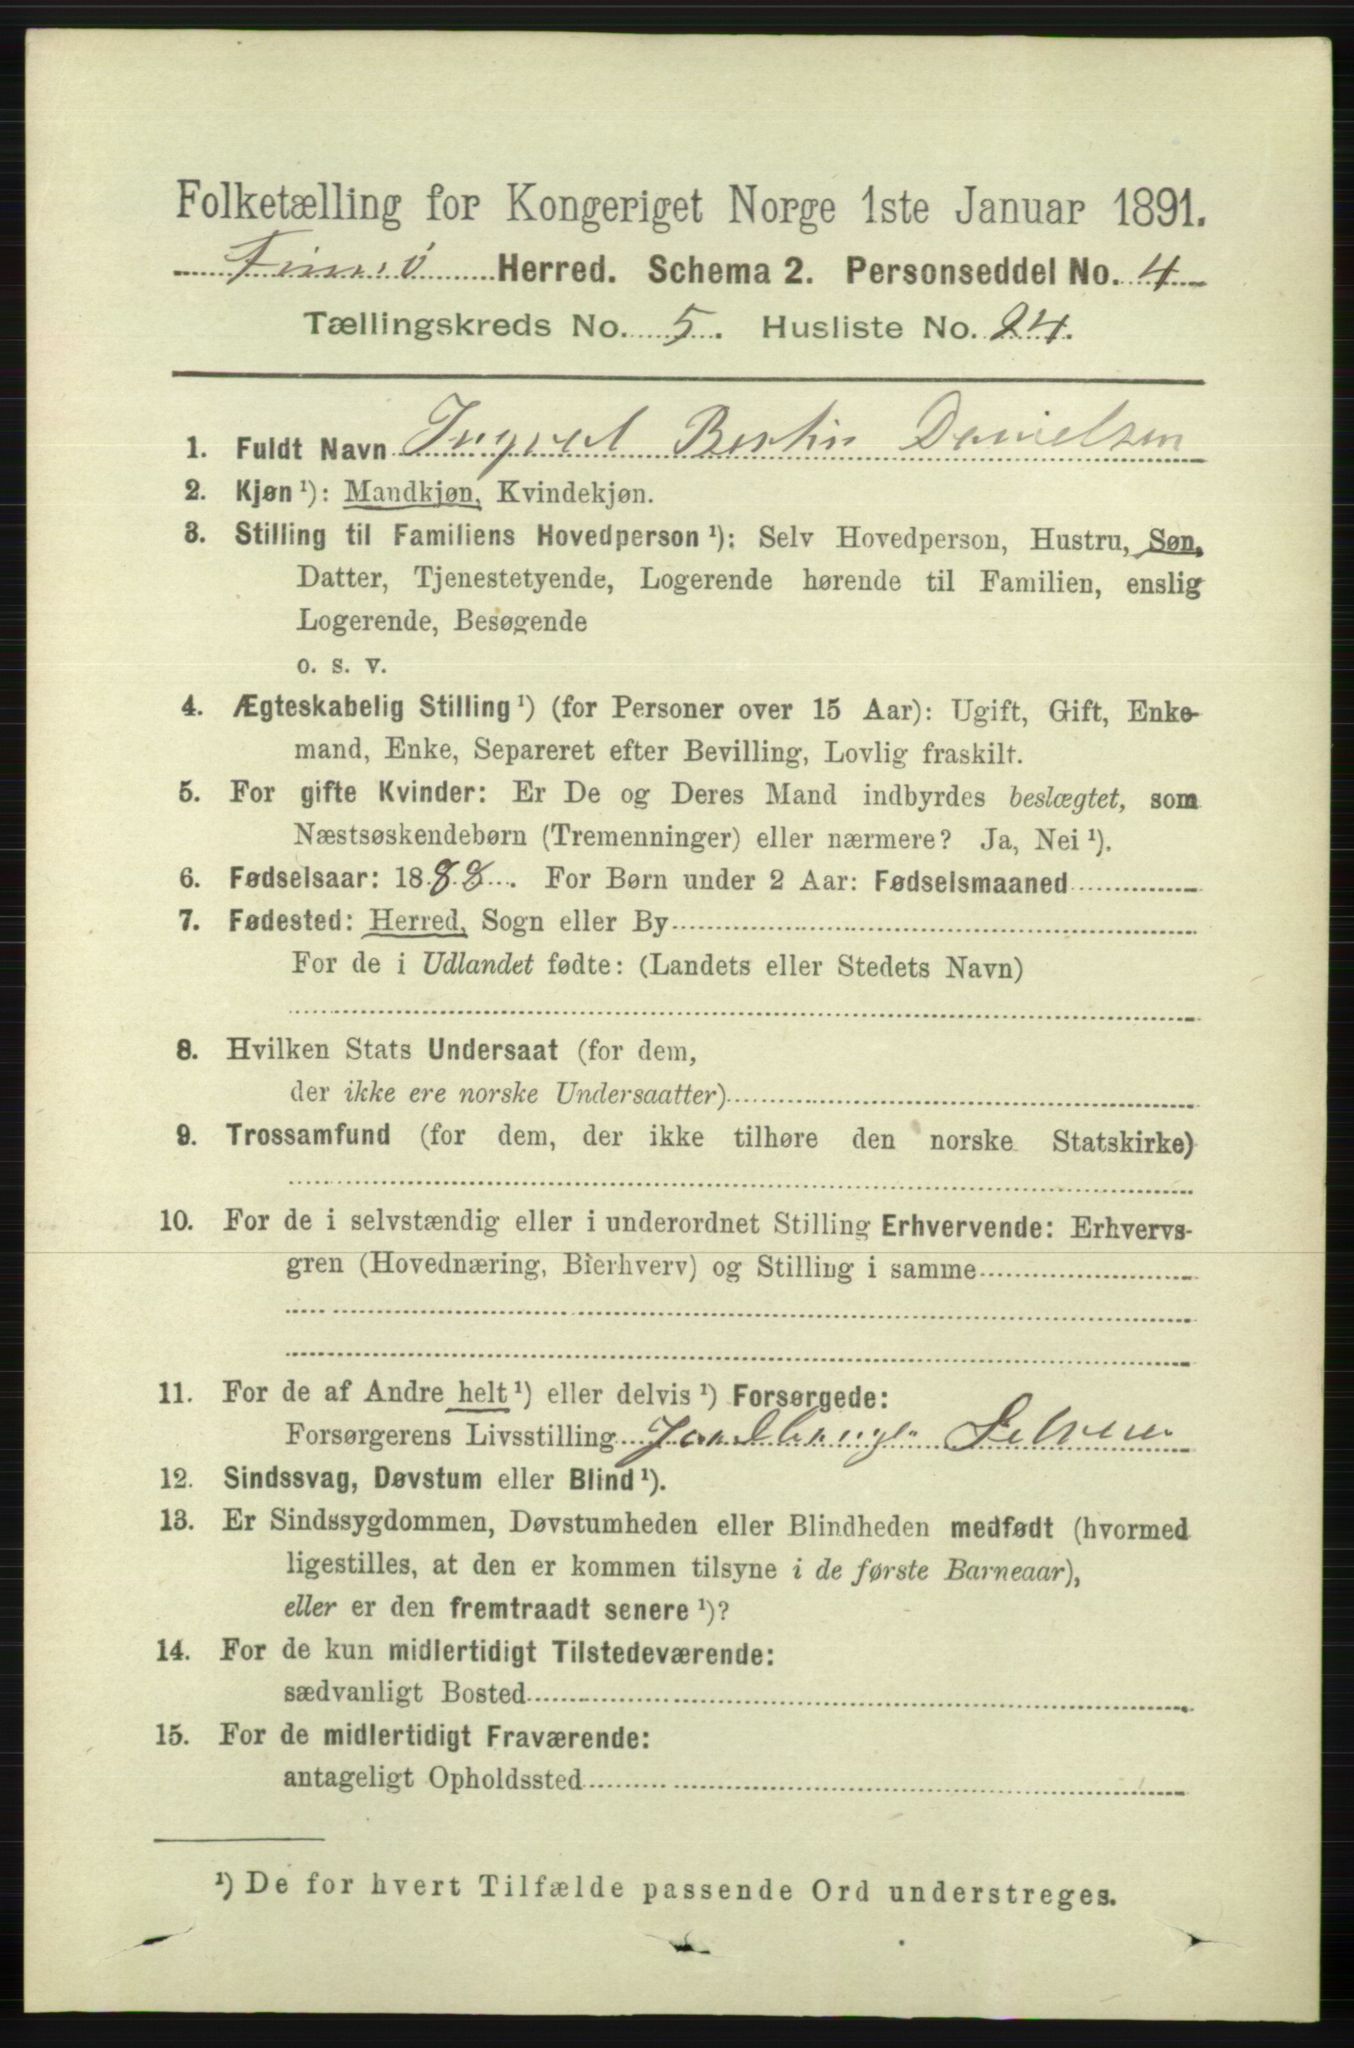 Folketælling for Kongeriget Norge 1ste Januar 1891.
Finnø Herred. Schema 2. Personseddel No. 4
Tællingskreds No. 5. Husliste No. 24.
1. Fuldt Navn Ingvald Bertin Danielsen
2. Kjøn ¹): Mandkjøn, Kvindekjøn.
3. Stilling til Familiens Hovedperson ¹): Selv Hovedperson, Hustru, Søn,
Datter, Tjenestetyende, Logerende hørende til Familien, enslig
Logerende, Besøgende
o. s. v.
4. Ægteskabelig Stilling ¹) (for Personer over 15 Aar): Ugift, Gift, Enke-
mand, Enke, Separeret efter Bevilling, Lovlig fraskilt.
5. For gifte Kvinder: Er De og Deres Mand indbyrdes beslægtet, som
Næstsøskendebørn (Tremenninger) eller nærmere? Ja, Nei ¹).
6. Fødselsaar: 1888. For Børn under 2 Aar: Fødselsmaaned
7. Fødested: Herred, Sogn eller By
For de i Udlandet fødte: (Landets eller Stedets Navn)
8. Hvilken Stats Undersaat (for dem,
der ikke ere norske Undersaatter)
9. Trossamfund (for dem, der ikke tilhøre den norske Statskirke)
10. For de i selvstændig eller i underordnet Stilling Erhvervende: Erhvervs-
gren (Hovednæring, Bierhverv) og Stilling i samme
11. For de af Andre helt ¹) eller delvis ¹) Forsørgede:
Forsørgerens Livsstilling Selveier
12. Sindssvag, Døvstum eller Blind ¹).
13. Er Sindssygdommen, Døvstumheden eller Blindheden medfødt (hvormed
ligestilles, at den er kommen tilsyne i de første Barneaar),
eller er den fremtraadt senere ¹)?
14. For de kun midlertidigt Tilstedeværende:
sædvanligt Bosted
15. For de midlertidigt Fraværende:
antageligt Opholdssted
¹) De for hvert Tilfælde passende Ord understreges.